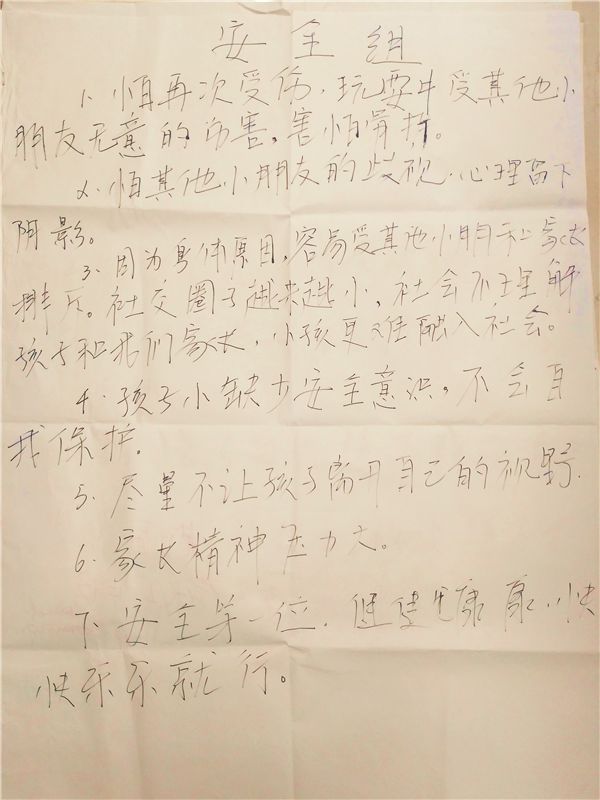 安全组
1、怕再次受伤,玩耍中受其他小
朋友无意的伤害,害怕骨折。
2、怕其他小朋友的歧视、心理留下
阴影。
3、因为身体原因,容易受其他小朋和家长
排斥。社交圈子越来越小,社会不理解
孩子和我们家长,小孩更难融入社会。
4、孩子小缺少安全意识,不会自
我保护。
5、尽量不让孩子离开自己的视野.
6、家长精神压力大。
7、安全第一位,健健康康,快
快乐乐就行。